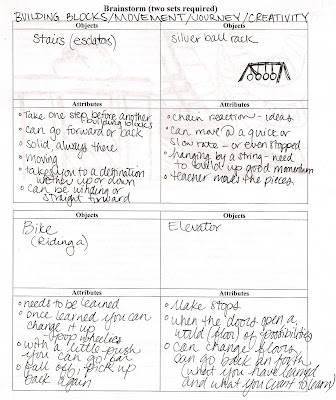 Brainstorm (two sets required)
BUILDING BLOCKS/MOVEMENT/JOURNEY/CREATIVITY
Objects
Stairs (esclators)
Objects
silver ball rack
Attributes
• Take one step before another
• building blocks
• can go forward or back
• solid, always there
• moving
• takes you to a destination
wether up or down
• can be winding or
straight forward
Attributes
• chain reaction - ideas
• can move @ a quick or
slow rate - or even stopped
• hanging by a string - need
to build up good momentum
• teacher moves the pieces
Objects
Bike
(Riding a)
Objects
Elevator
Attributes
• needs to be learned
• once learned you can
change it up
pop wheelies
• with a little push
you can go far
• fall off, pick up
back again
Attributes
• Make stops
• when the doors open a
world (floor) of possibilities
• can change floors,
can go back an forth
(what you have learned
and what you want to learn)